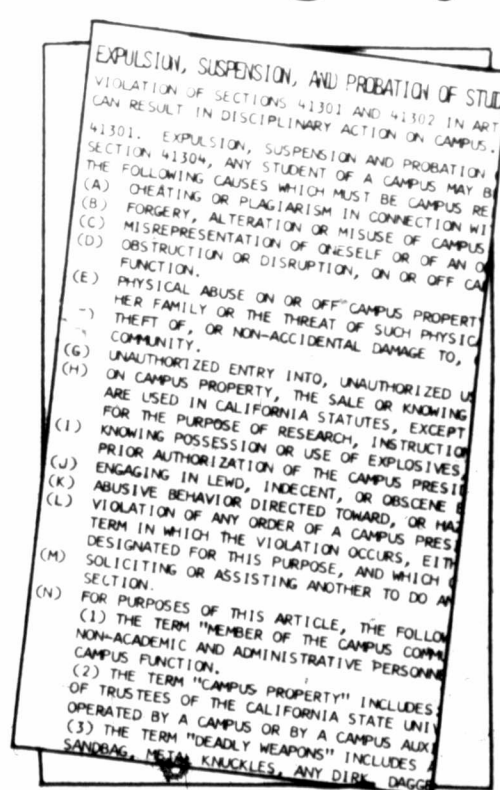 EXPULSION, SUSPENSION, AND PROBATION OF STUD
VIOLATION OF SECTIONS 41301 AND 41302 IN ART
CAN RESULT IN DISCIPLINARY ACTION ON CAMPUS.
41301. EXPULSION, SUSPENSION AND PROBATION
SECTION 41304, ANY STUDENT OF A CAMPUS MAY B
THE FOLLOWING CAUSES WHICH MUST BE CAMPUS RE
(A) CHEATING OR PLAGIARISM IN CONNECTION WI
(B) FORGERY, ALTERATION OR MISUSE OF CAMPUS
(C) MISREPRESENTATION OF ONESELF OR OF AN O
(D) OBSTRUCTION OR DISRUPTION, ON OR OFF CA
FUNCTION.
(E) PHYSICAL ABUSE ON OR OFF CAMPUS PROPERTY
HER FAMILY OR THE THREAT OF SUCH PHYSIC
) THEFT OF, OR NON-ACCIDENTAL DAMAGE TO,
COMMUNITY.
(G) UNAUTHORIZED ENTRY INTO, UNAUTHORIZED U
(H) ON CAMPUS PROPERTY, THE SALE OR KNOWING
ARE USED IN CALIFORNIA STATUTES, EXCEPT
FOR THE PURPOSE OF RESEARCH, INSTRUCTION
(I) KNOWING POSSESSION OR USE OF EXPLOSIVES,
PRIOR AUTHORIZATION OF THE CAMPUS PRESID
(J) ENGAGING IN LEWD, INDECENT, OR OBSCENE B
(K) ABUSIVE BEHAVIOR DIRECTED TOWARD, OR HAZ
(L) VIOLATION OF ANY ORDER OF A CAMPUS PRES
TERM IN WHICH THE VIOLATION OCCURS, EITH
DESIGNATED FOR THIS PURPOSE, AND WHICH
(M) SOLICITING OR ASSISTING ANOTHER TO DO AN
SECTION.
(N) FOR PURPOSES OF THIS ARTICLE, THE FOLLOW
(1) THE TERM "MEMBER OF THE CAMPUS COMMU
NON-ACADEMIC AND ADMINISTRATIVE PERSONNE
CAMPUS FUNCTION.
(2) THE TERM "CAMPUS PROPERTY" INCLUDES
OF TRUSTEES OF THE CALIFORNIA STATE UNIV
OPERATED BY A CAMPUS OR BY A CAMPUS AUXI
(3) THE TERM "DEADLY WEAPONS" INCLUDES A
SANDBAG, METAL KNUCKLES, ANY DIRK, DAGGE